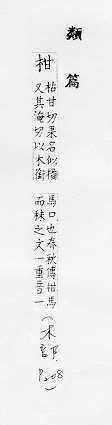 類篇
柑
枯甘切果名似橘
又其淹切以木銜
馬口也春秋傳柑馬
而秣之文一重音一
(木部
P.208)